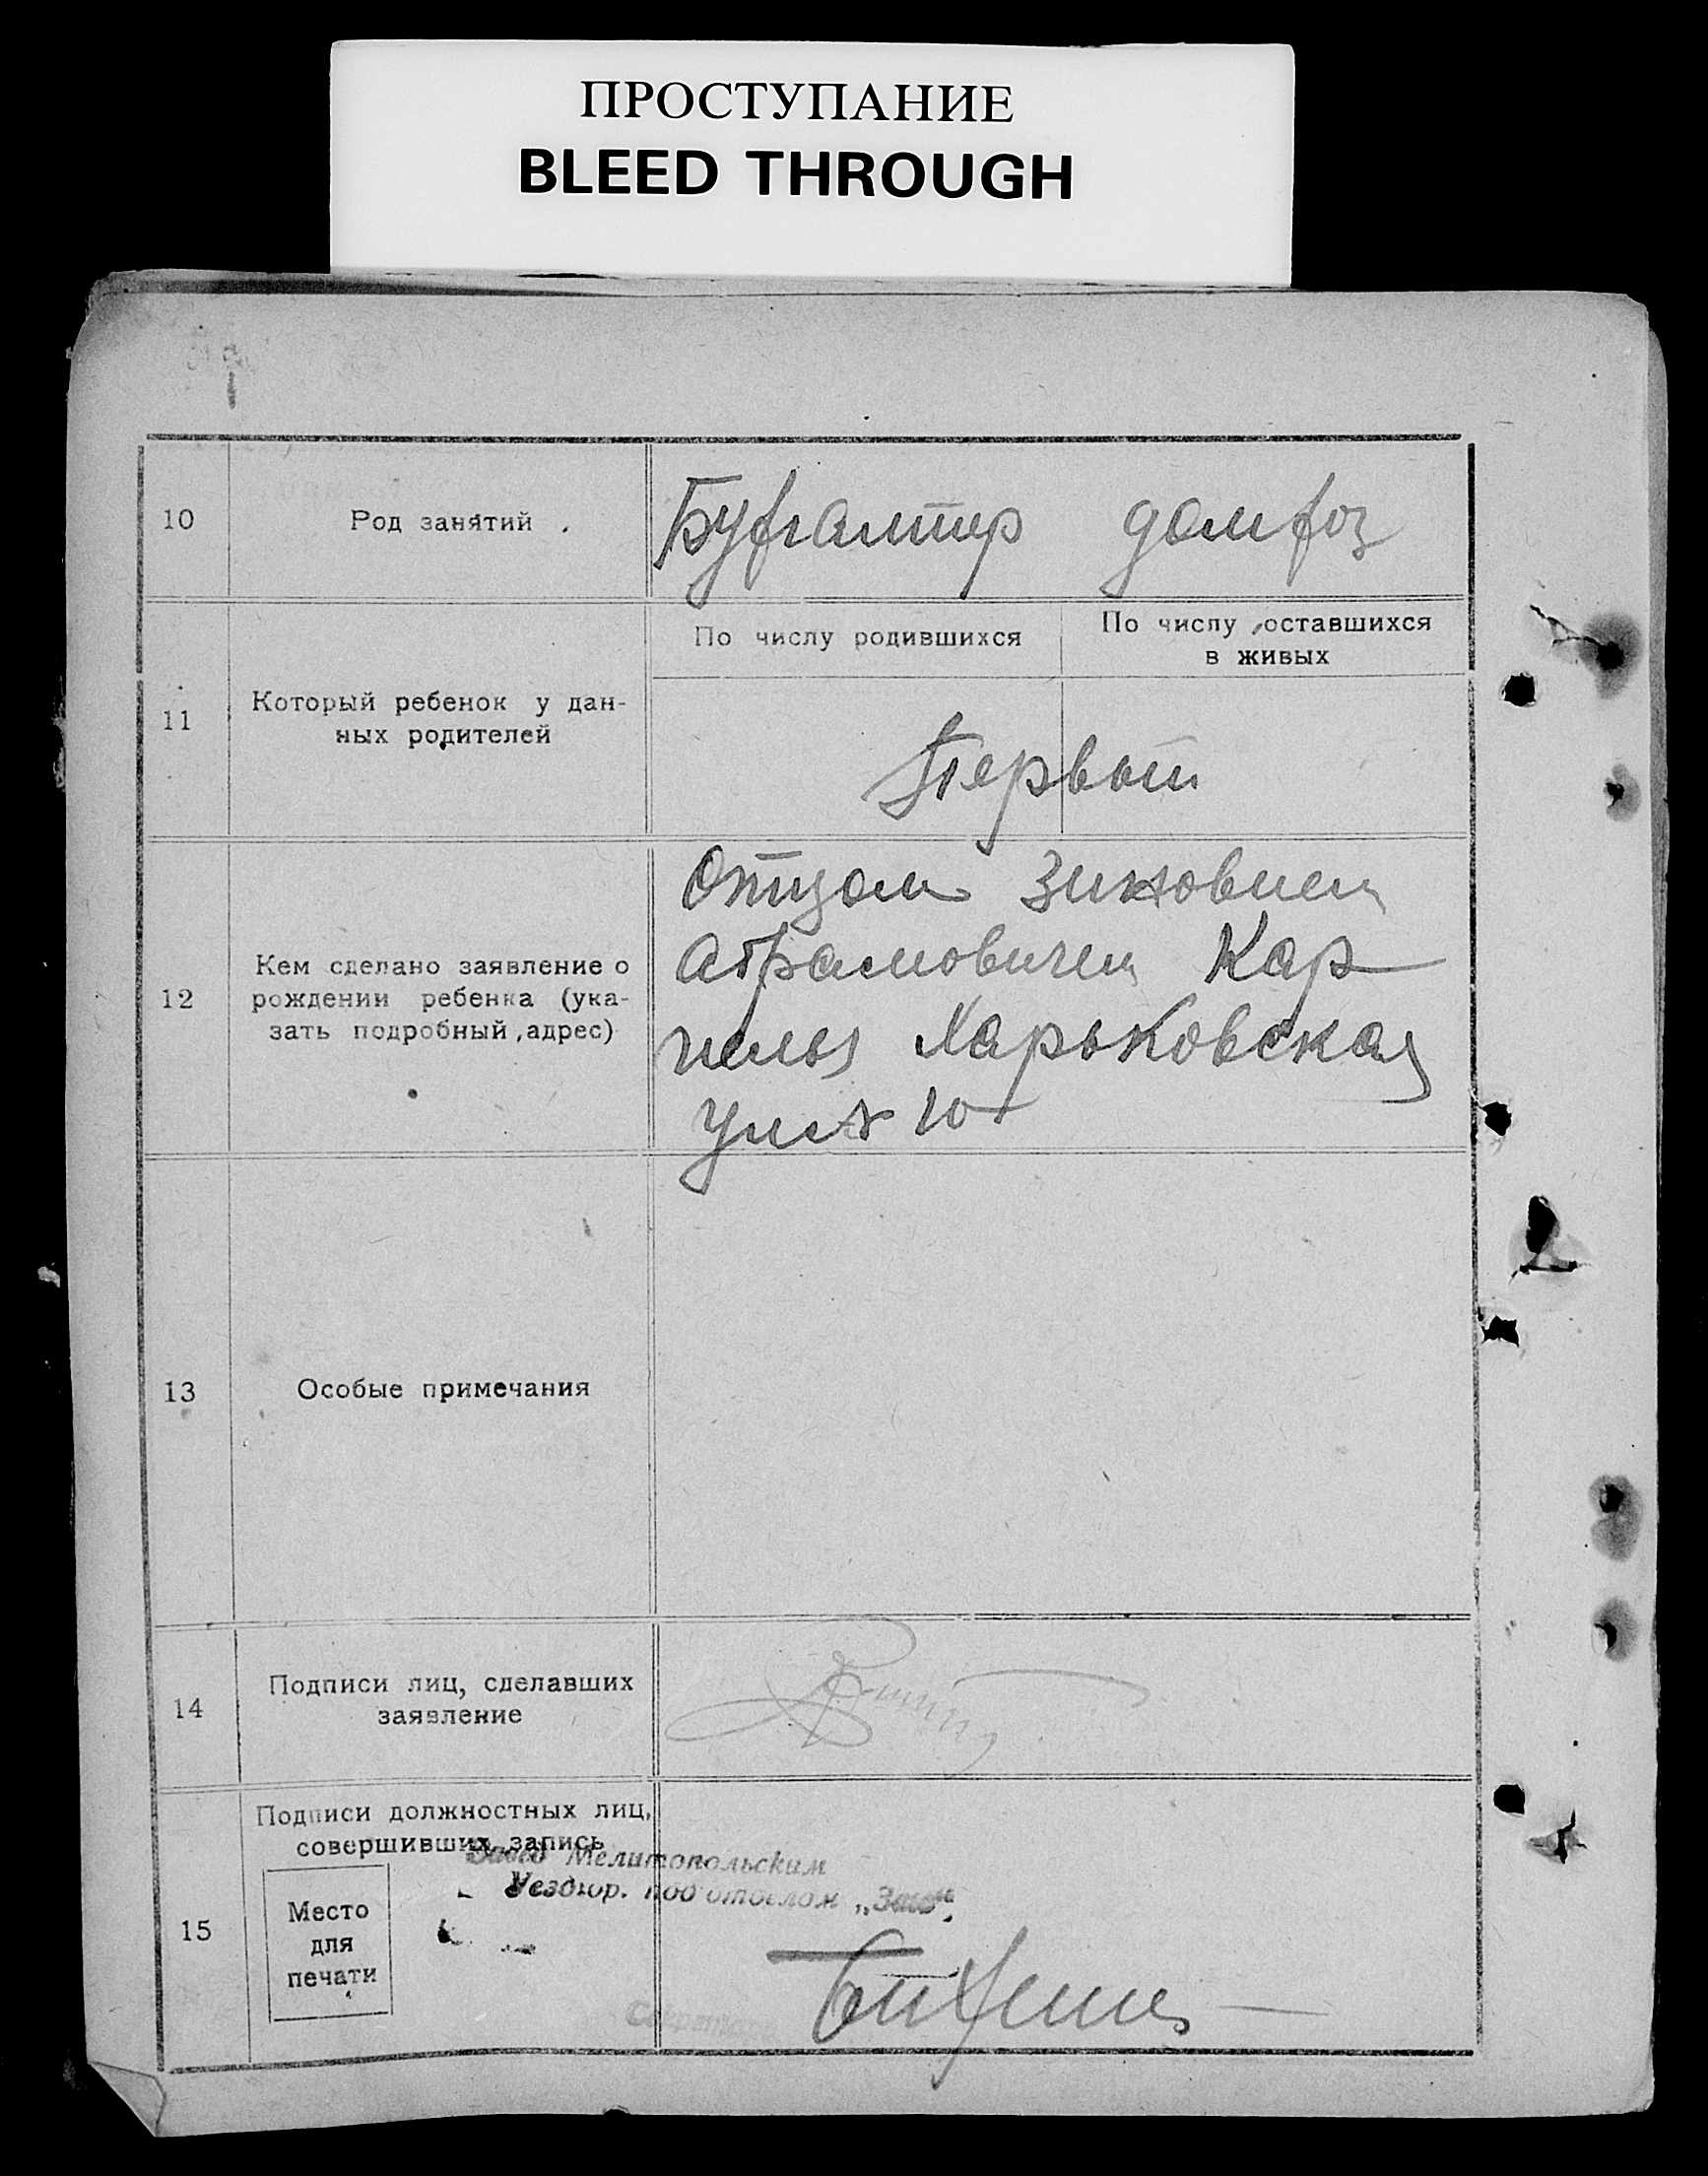 ПРОСТУПАНИЕ
BLEED THROUGH
10
Род занятий
Бухгалтер домхоз
11
Который ребенок у дан-
ных родителей
По числу родившихся
По числу оставшихся
в живых
Первый
12
Кем сделано заявление о
рождении ребенка (ука-
зать подробный адрес)
Отцом Зиновием
Абрамовичем Кар
Харьковская
10
13
Особые примечания
14
Подписи лиц, сделавших
заявление
15
Подписи должностных лиц,
совершивших запись
Место
для
печати
Мелитопольским
под'отделом „Загс“